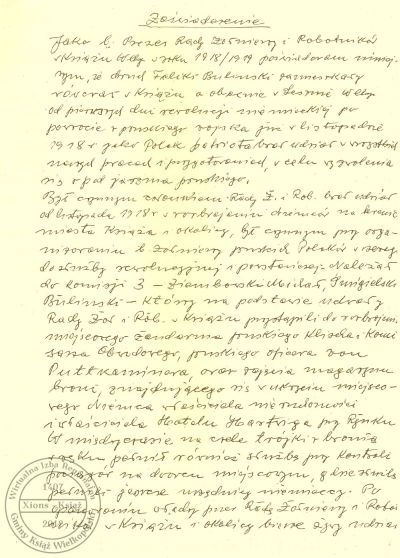 Zaświadczenie
Jako b. Prezes Rady Żołnierzy i Robotników
w Książu Wlkp w roku 1918/1919 poświadczam niniej-
szym, że druh Feliks Buliński zamieszkały
wówczas w Książu a obecnie w Wlkp
od pierwszych dni rewolucji niemieckiej po
powrocie z pruskiego wojska już w listopadzie
1918 r jako Polak patriota brał udział w wszystkich
naszych pracach i przygotowaniach, w celu wyzwolenia
się z pod jarzma pruskiego.
Był czynnym członkiem Rady Ż. i Rob. brał udział
od listopada 1918 r w rozbrojeniu Niemców na terenie
miasta Książa i okolicy, był czynnym przy orga-
nizowaniu b. żołnierzy pruskich Polaków w szereg
do służby rewolucyjnej i powstańczej. Należał
do komisji 3 - Ziembowski Michał, Śmigielski
Buliński - Którzy na podstawie uchwały
Rady Żoł i Rob. w Książu przystąpili do rozbrojenia
miejscowego żandarma pruskiego Klischa i Komi
sarza pruskiego oficera von
Puttkaminera oraz zajęcia magazynu
broni, znajdującego się w ukryciu miejsco-
wego Niemca właściciela nieruchomości
i właściciela Hotelu Hartwiga przy Rynku
W międzyczasie na czele trójki z bronią
w ręku pełnił również służbę przy kontroli
pociągów na dworcu miejscowym, gdzie
pełnili jeszcze urzędnicy niemieccy. Po
uchwały przez Radę Żołnierzy i Robo
w Książu i okolicy bierze żywy udział
Wirtualna Izba Regionalna
Xions Książ
Gminy Książ Wielkopolski